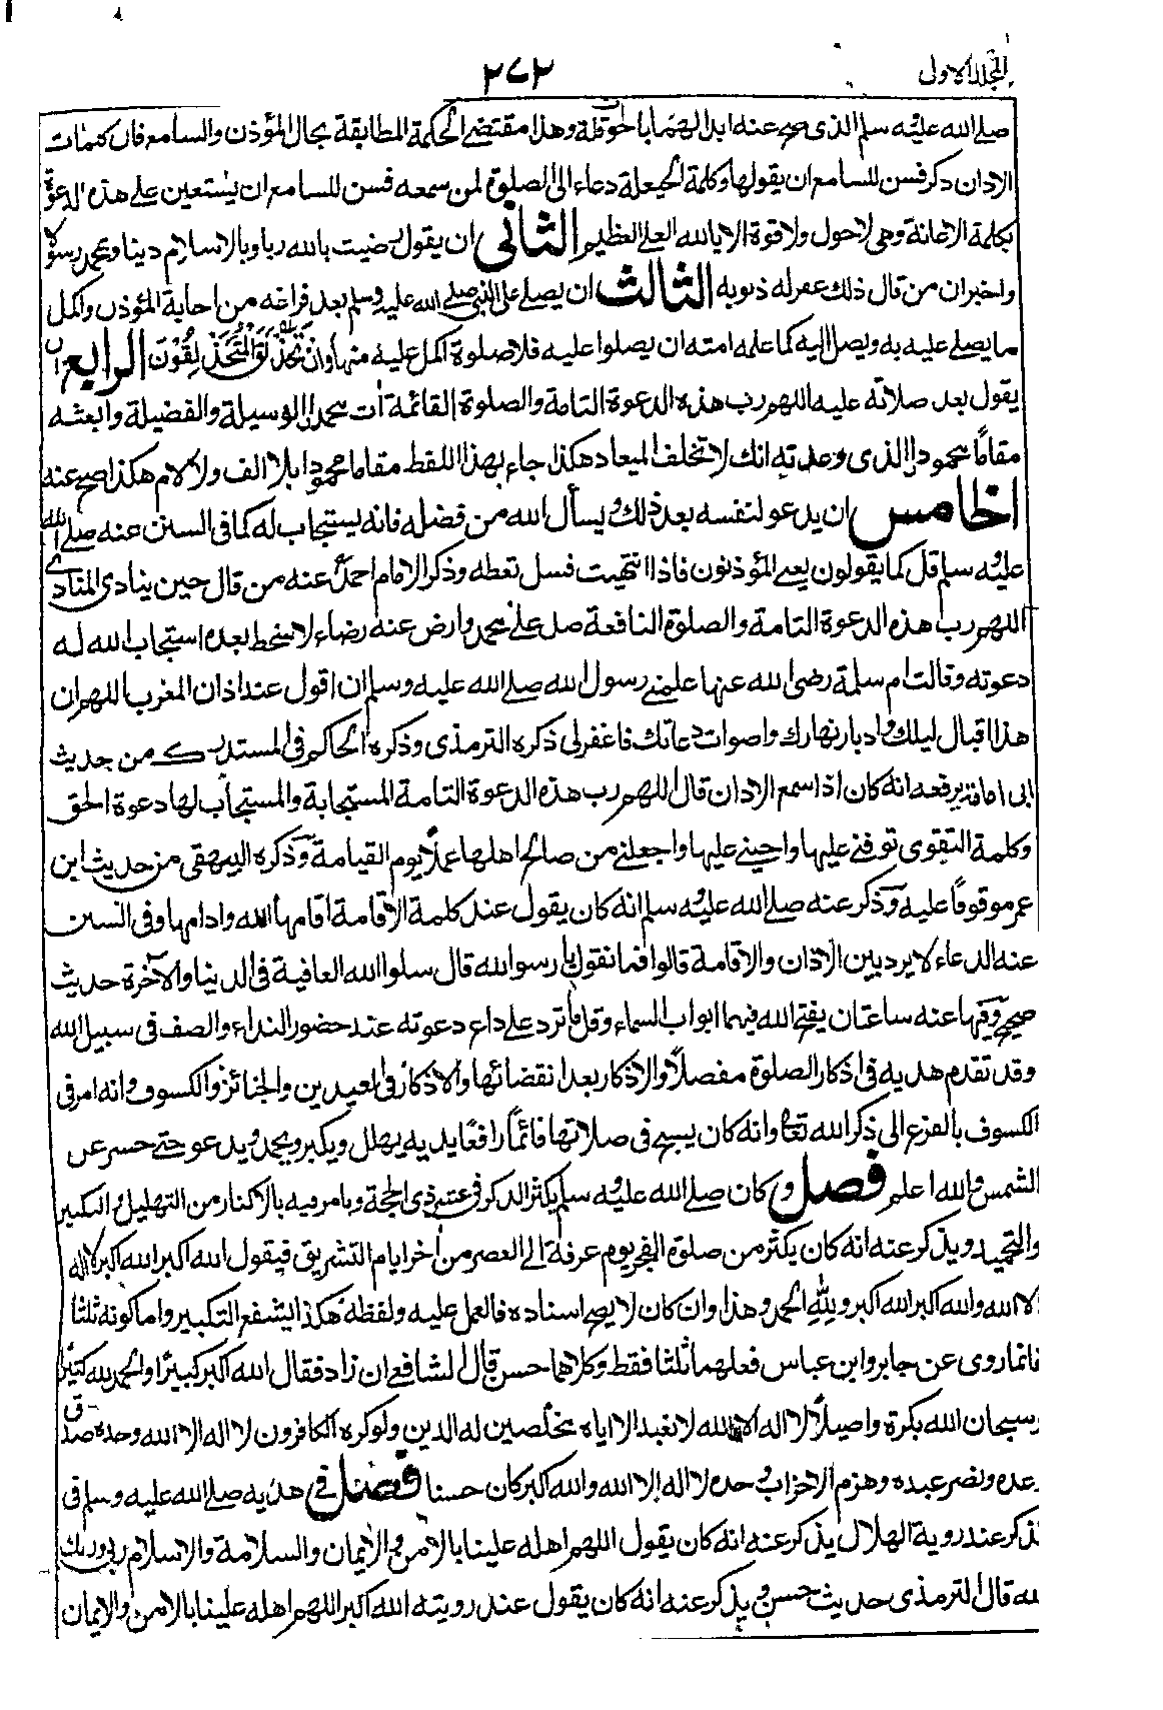 المجلد الاولى
٢٧٢
صلے الله عليُه سلم الذى صح عنه ابدالهما باحوقلة وهذا مقتضے الحكمة المطابقة بحال المؤذن والسامع فان كلمات
الاذان ذكر فسن للسامع ان يقولها وكلمة الحيعلة دعاء الى الصلوة لمن سمعه فسن للسامع ان يستعين على هذه الدعوة
بكلمة الاعانة وهى لاحول ولا قوة الا بالله العلے العظيم الثانى ان يقول رضيت بالله ربا وبالاسلام دينا وبمحمد رسولا
واخبر ان من قال ذلك غفر له ذنوبه الثالث ان يصلے على النبى صلے الله عليه وسلم بعد فراغه من اجابة المؤذن واكمل
ما يصلے عليه به ويصل اليه كما علمه امته ان يصلوا عليه فلا صلوة اكمل عليه منها وان الرابع ان
يقول بعد صلاته عليه اللهم رب هذه الدعوة التامة والصلوة القائمة ات محمدا الوسيلة والفضيلة وابعثه
مقامًا محمودا الذى وعدته انك لا تخلف الميعاد هكذا جاء بهذا اللفظ مقاما محمودا بلا الف ولا لام هكذا صح عنه
الخامس ان يدعو لنفسه بعد ذلك ويسأل الله من فضله فانه يستجاب له كما فى السنن عنه صلے الله
عليُه سلم قل كما يقولون يعنے المؤذنون فاذا انتهيت فسل تعطه وذكر الامام احمد عنه من قال حين ينادى المنادى
اللهم رب هذه الدعوة التامة والصلوة النافعة صل على محمد وارض عنه رضاء لا سخط بعده استجاب الله له
دعوته وقالت ام سلمة رضى الله عنها علمنے رسول الله صلے الله عليه وسلم ان اقول عند اذان المغرب اللهم ان
هذا اقبال ليلك وادبار نهارك واصوات دعاتك فاغفر لى ذكره الترمذى وذكره الحاكم فى المستدرك من حديث
ابى امامة يرفعه انه كان اذا سمع الاذان قال اللهم رب هذه الدعوة التامة المستجابة والمستجاب لها دعوة الحق
وكلمة التقوى توفنے عليها واحينے عليها واجعلنے من صالح اهلها عملًا يوم القيامة وذكره البيهقى من حديث ابن
عمر موقوفًا عليه وذكر عنه صلے الله عليُه سلم انه كان يقول عند كلمة الاقامة اقامها الله وادامها وفى السنن
عنه الدعاء لا يرد بين الاذان والاقامة قالوا فما نقول يا رسول الله قال سلوا الله العافية فى الدنيا والآخرة حديث
صحيح وفيها عنه ساعتان يفتح الله فيهما ابواب السماء وقل ما ترد على داع دعوته عند حضور النداء والصف فى سبيل الله
وقد تقدم هديه فى اذكار الصلوة مفصلًا والاذكار بعد انقضائها والاذكار فى العيدين والجنائز والكسوف وانه امر فى
الكسوف بالفزع الى ذكر الله تعالى وانه كان يسبح فى صلاتها قائمًا رافعًا يديه يهلل ويكبر ويحمد ويدعو حتے حسر عن
الشمس والله اعلم فصل وكان صلے الله عليُه سلم يكثر الذكر فى عشر ذى الحجة ويامر فيه بالاكثار من التهليل والتكبير
والتحميد ويذكر عنه انه كان يكثر من صلوة الفجر يوم عرفة الى العصر من اخر ايام التشريق فيقول الله اكبر الله اكبر لا اله
الا الله والله اكبر الله اكبر ولِلّهِ الحمد وهذا وان كان لا يصح اسناده فالعمل عليه ولفظه هكذا يشفع التكبير واما كونه ثلثا
فانما روى عن جابر وابن عباس فعلهما ثلثا فقط وكلاهما حسن قال الشافعے ان زاد فقال الله اكبر كبيرًا والحمد لله كثيرًا
وسبحان الله بكرة واصيلًا لا اله الا الله لا نعبد الا اياه مخلصين له الدين ولو كره الكافرون لا اله الا الله وحده صدق
وعده ونصر عبده وهزم الاحزاب وحده لا اله الا الله والله اكبر كان حسنا فصل فى هديه صلے الله عليه وسلم فى
الذكر عند روية الهلال يذكر عنه انه كان يقول اللهم اهله علينا بالامن والايمان والسلامة والاسلام ربى وربك
الله قال الترمذى حديث حسن ويذكر عنه انه كان يقول عند رويته الله اكبر اللهم اهله علينا بالامن والايمان